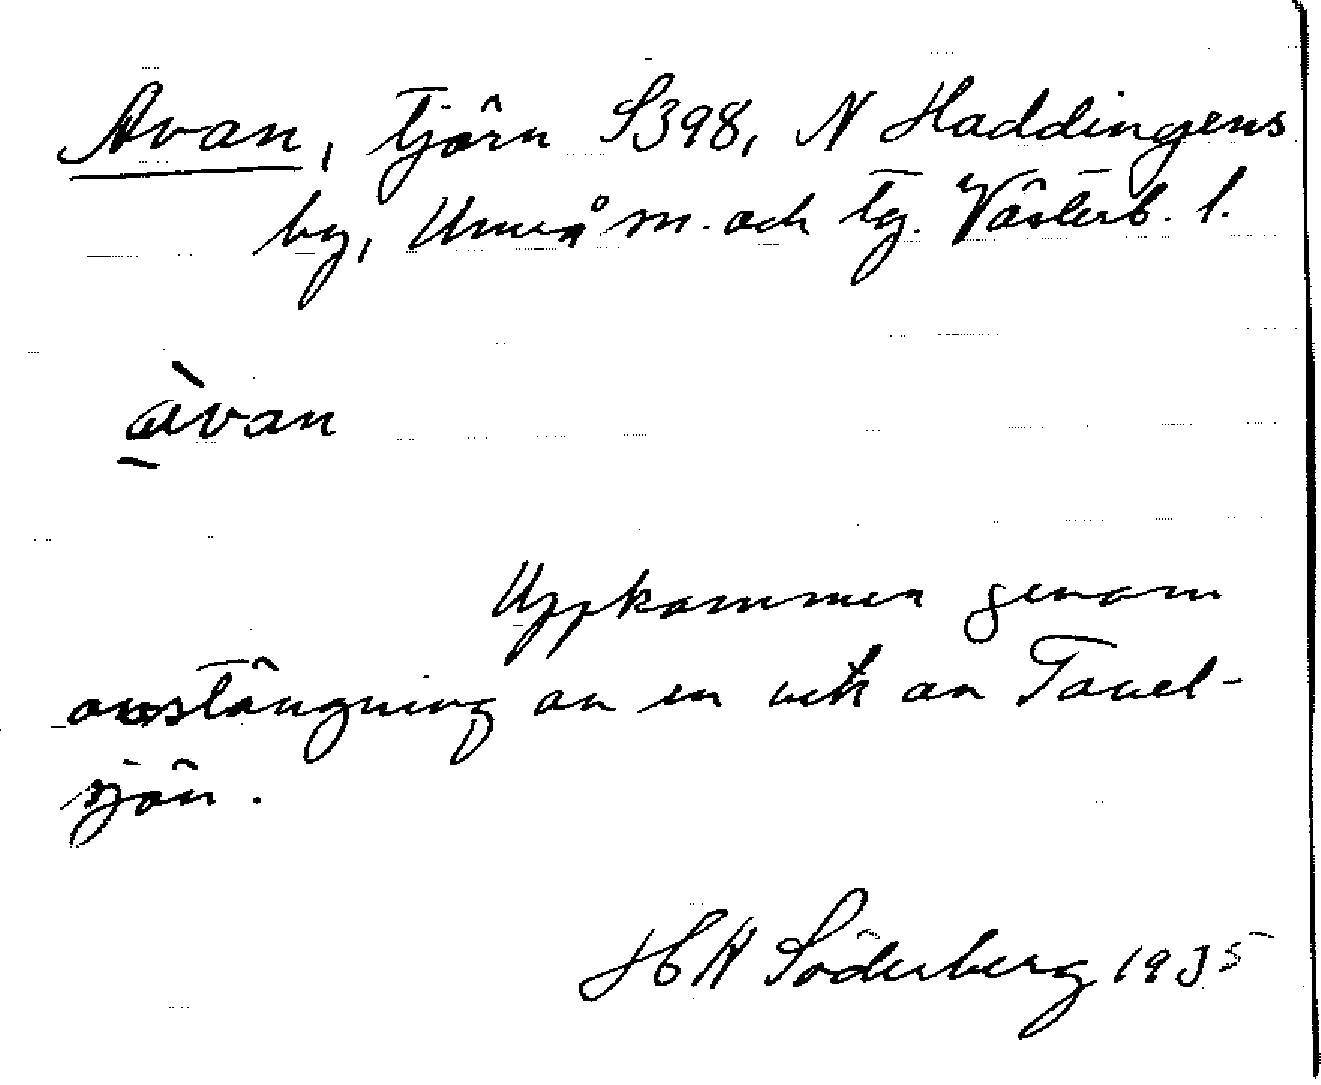 Avan, tjärn S398, N Haddingens
by, Umeå m. och tg. Västerb. l.
àvan
Uppkommen genom
avstängning av en vik av Tavel-
sjön.
H Söderberg 1935